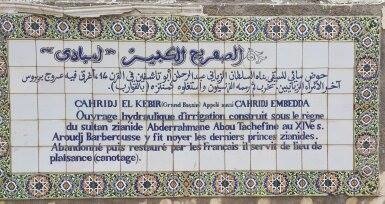 الصهريج الكبير امبادى
حوض مائي للسقي بناه السلطان الزياني عبد الرحمن أبو تاشفين في القرن 14م أغرق فيه عروج بربروس
آخر الأمراء الزيانيين. الفرنسيون
CAHRIDJ EL KEBIR (Grand Bassin) Appelé aussi CAHRIDJ EMBEDDA
Ouvrage hydraulique d'irrigation construit sous le règne
du sultan zianide Abderrahmane Abou Tachefine au XIVe s.
Aroudj Barberousse y fit noyer les derniers princes zianides.
Abandonné puis restauré par les français il servit de lieu de
plaisance (canotage).